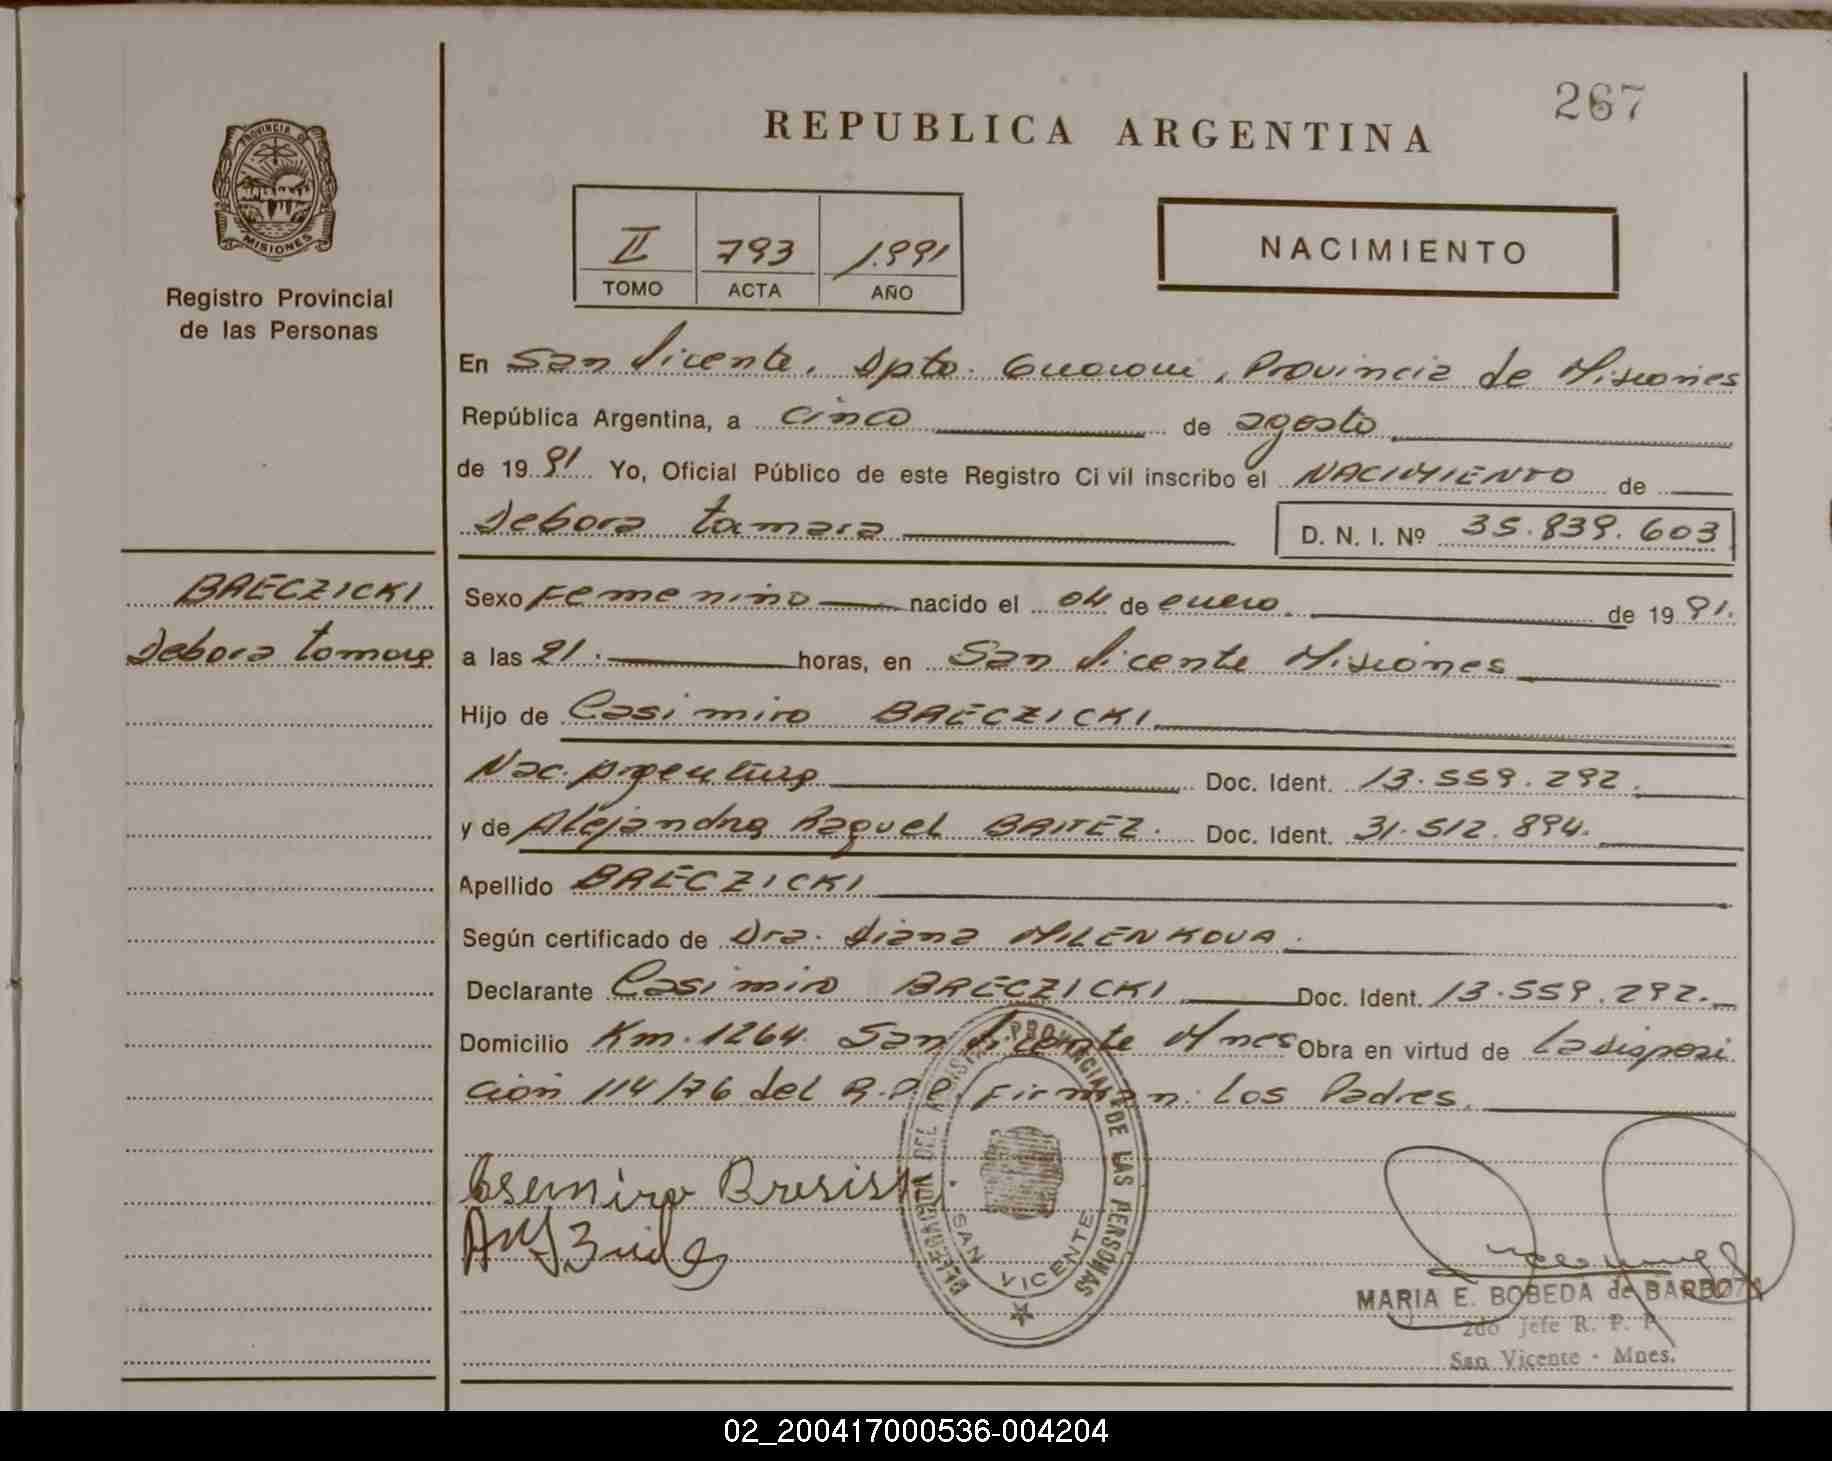 267
REPUBLICA ARGENTINA
PROVINCIA D
MISIONES
Registro Provincial
de las Personas
II 793 1.991
TOMO ACTA AÑO
NACIMIENTO
En San Vicente, Dpto. Guarani, Provincia de Misiones
República Argentina, a cinco de agosto
de 19 91 Yo, Oficial Público de este Registro Civil inscribo el NACIMIENTO de
Debora tamara D. N. I. Nº 35.839.603
BRECZICKI
Debora tamara
Sexo Femenino nacido el 04 de enero de 19 91.
a las 21. horas, en San Vicente Misiones
Hijo de Casimiro BRECZICKI
Nac. Argentina Doc. Ident. 13.559.292.
y de Alejandra Raquel BAITEZ. Doc. Ident. 31.512.894.
Apellido BRECZICKI
Según certificado de Dra. Diana MILENKOVA.
Declarante Casimiro BRECZICKI Doc. Ident. 13.559.292.
Domicilio Km. 1264. San Vicente Mnes Obra en virtud de
ción 114/76 del R.P.P. Firman: Los Padres.
DELEGACION DEL REGISTRO PROVINCIAL DE LAS PERSONAS
SAN VICENTE
MARIA E. BOBEDA de BARBOZA
2do jefe R. P. P.
San Vicente - Mnes.
02_200417000536-004204